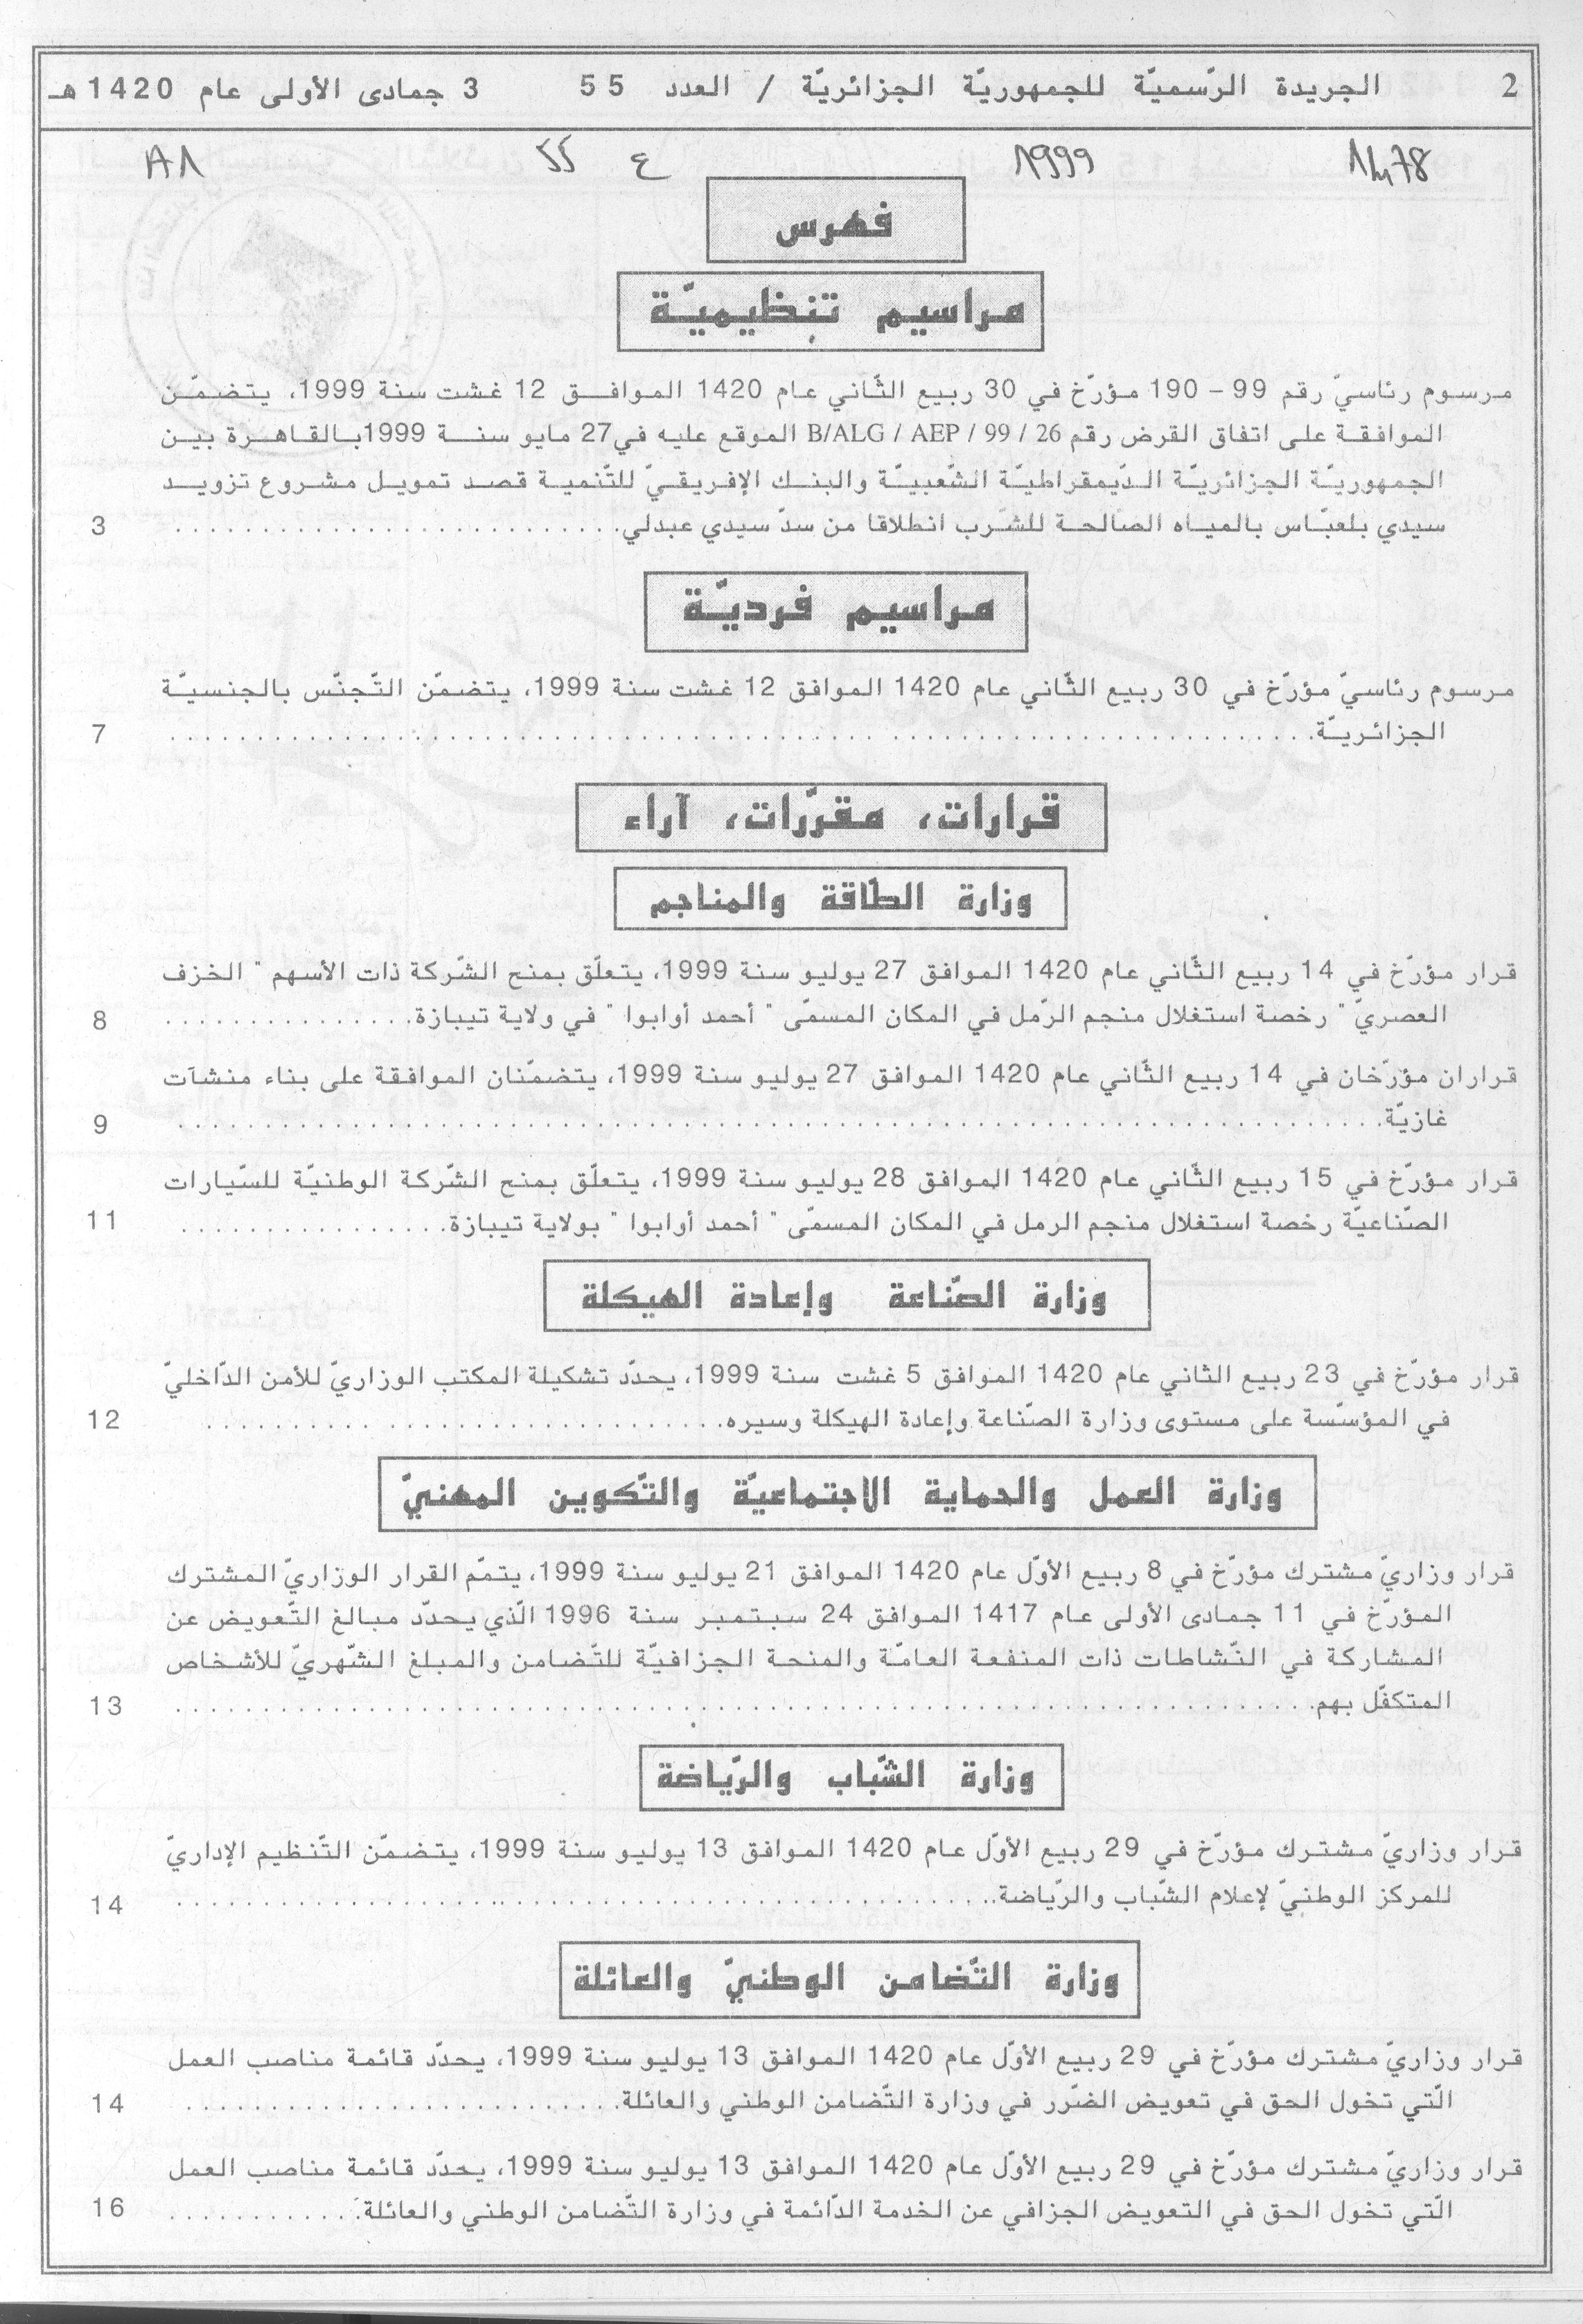 2 الجريدة الرّسميّة للجمهوريّة الجزائريّة / العدد 55 3 جمادى الأولى عام 1420 هـ
1478 1999 ع 55 A1
فهرس
مراسيم تنظيميّة
مرسوم رئاسيّ رقم 99 – 190 مؤرّخ في 30 ربيع الثّاني عام 1420 الموافق 12 غشت سنة 1999، يتضمّن
الموافقة على اتفاق القرض رقم B/ALG / AEP / 99 / 26 الموقع عليه في 27 مايو سنة 1999 بالقاهرة بين
الجمهوريّة الجزائريّة الدّيمقراطيّة الشّعبيّة والبنك الإفريقيّ للتّنمية قصد تمويل مشروع تزويد
سيدي بلعبّاس بالمياه الصّالحة للشّرب انطلاقا من سدّ سيدي عبدلي........................... 3
مراسيم فرديّة
مرسوم رئاسيّ مؤرّخ في 30 ربيع الثّاني عام 1420 الموافق 12 غشت سنة 1999، يتضمّن التّجنّس بالجنسيّة
الجزائريّة........................... 7
قرارات، مقرّرات، آراء
وزارة الطّاقة والمناجم
قرار مؤرّخ في 14 ربيع الثّاني عام 1420 الموافق 27 يوليو سنة 1999، يتعلّق بمنح الشّركة ذات الأسهم " الخزف
العصريّ " رخصة استغلال منجم الرّمل في المكان المسمّى " أحمد أوابوا " في ولاية تيبازة............... 8
قراران مؤرّخان في 14 ربيع الثّاني عام 1420 الموافق 27 يوليو سنة 1999، يتضمّنان الموافقة على بناء منشآت
غازيّة........................... 9
قرار مؤرّخ في 15 ربيع الثّاني عام 1420 الموافق 28 يوليو سنة 1999، يتعلّق بمنح الشّركة الوطنيّة للسّيارات
الصّناعيّة رخصة استغلال منجم الرمل في المكان المسمّى " أحمد أوابوا " بولاية تيبازة............... 11
وزارة الصّناعة وإعادة الهيكلة
قرار مؤرّخ في 23 ربيع الثاني عام 1420 الموافق 5 غشت سنة 1999، يحدّد تشكيلة المكتب الوزاريّ للأمن الدّاخليّ
في المؤسّسة على مستوى وزارة الصّناعة وإعادة الهيكلة وسيره........................... 12
وزارة العمل والحماية الاجتماعيّة والتّكوين المهنيّ
قرار وزاريّ مشترك مؤرّخ في 8 ربيع الأوّل عام 1420 الموافق 21 يوليو سنة 1999، يتمّم القرار الوزاريّ المشترك
المؤرّخ في 11 جمادى الأولى عام 1417 الموافق 24 سبتمبر سنة 1996 الّذي يحدّد مبالغ التّعويض عن
المشاركة في النّشاطات ذات المنفعة العامّة والمنحة الجزافيّة للتّضامن والمبلغ الشّهريّ للأشخاص
المتكفّل بهم........................... 13
وزارة الشّباب والرّياضة
قرار وزاريّ مشترك مؤرّخ في 29 ربيع الأوّل عام 1420 الموافق 13 يوليو سنة 1999، يتضمّن التّنظيم الإداريّ
للمركز الوطنيّ لإعلام الشّباب والرّياضة........................... 14
وزارة التّضامن الوطنيّ والعائلة
قرار وزاريّ مشترك مؤرّخ في 29 ربيع الأوّل عام 1420 الموافق 13 يوليو سنة 1999، يحدّد قائمة مناصب العمل
الّتي تخول الحق في تعويض الضّرر في وزارة التّضامن الوطني والعائلة........................... 14
قرار وزاريّ مشترك مؤرّخ في 29 ربيع الأوّل عام 1420 الموافق 13 يوليو سنة 1999، يحدّد قائمة مناصب العمل
الّتي تخول الحق في التعويض الجزافي عن الخدمة الدّائمة في وزارة التّضامن الوطني والعائلة............ 16